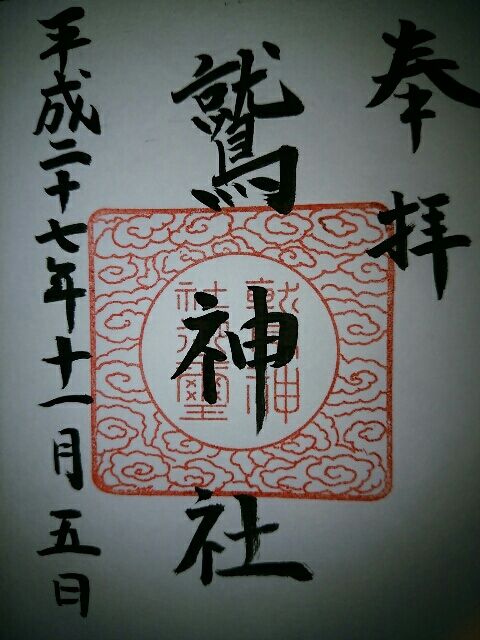 奉拝
鷲神社
平成二十七年十一月五日